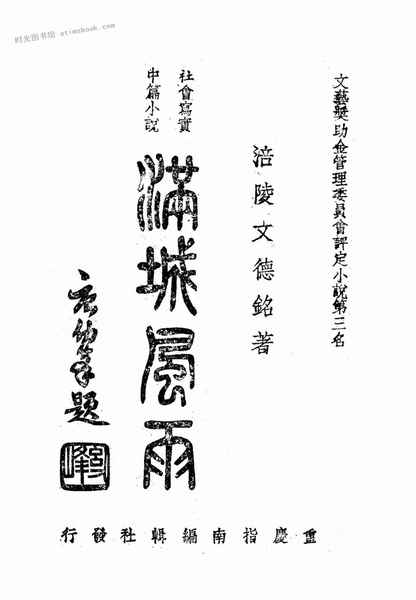 时光图书馆 etimebook.com
文藝奬助金管理委員會評定小說第三名
涪陵文德銘著
社會寫實
中篇小說
滿城風雨
題
重慶指南編輯社發行